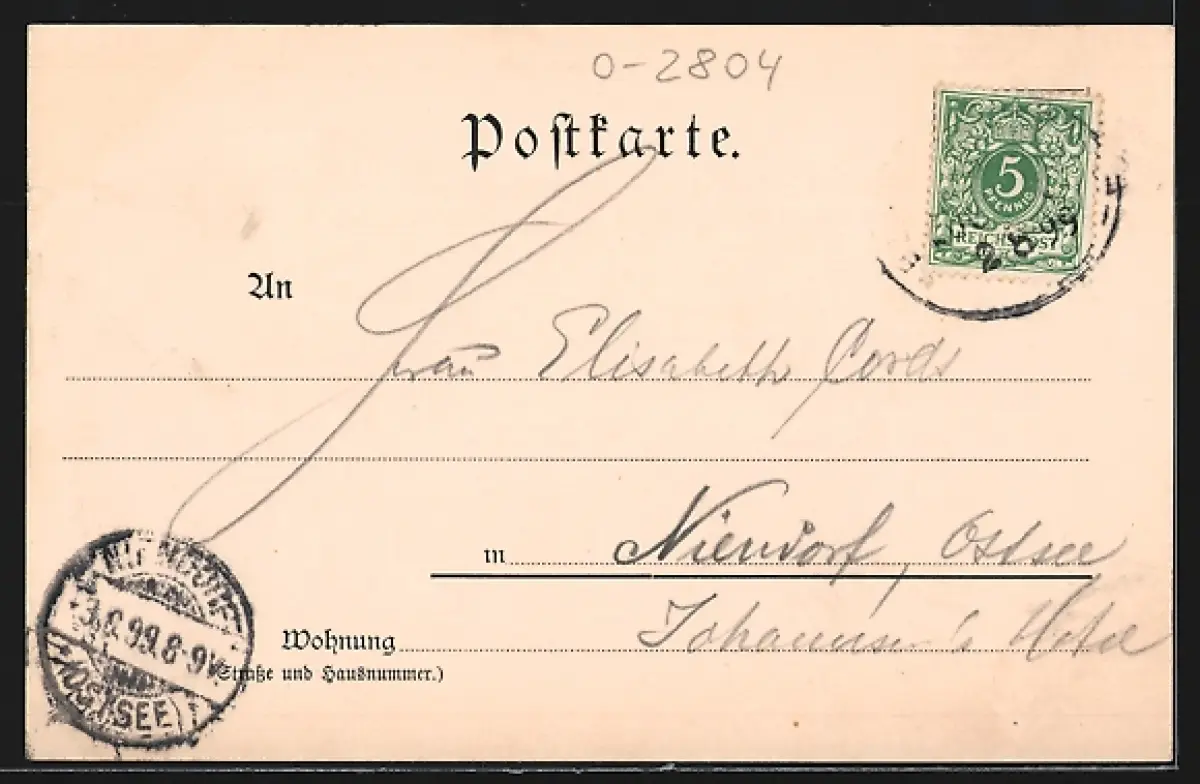 0-2804
Postkarte.
5
PFENNIG
REICHSPOST
2 8 99
An
Frau Elisabeth Cords
in Niendorf, Ostsee
Wohnung Johannsen's Hotel
(Straße und Hausnummer.)
NIENDORF
3.8.99.8-9V.
(OSTSEE)